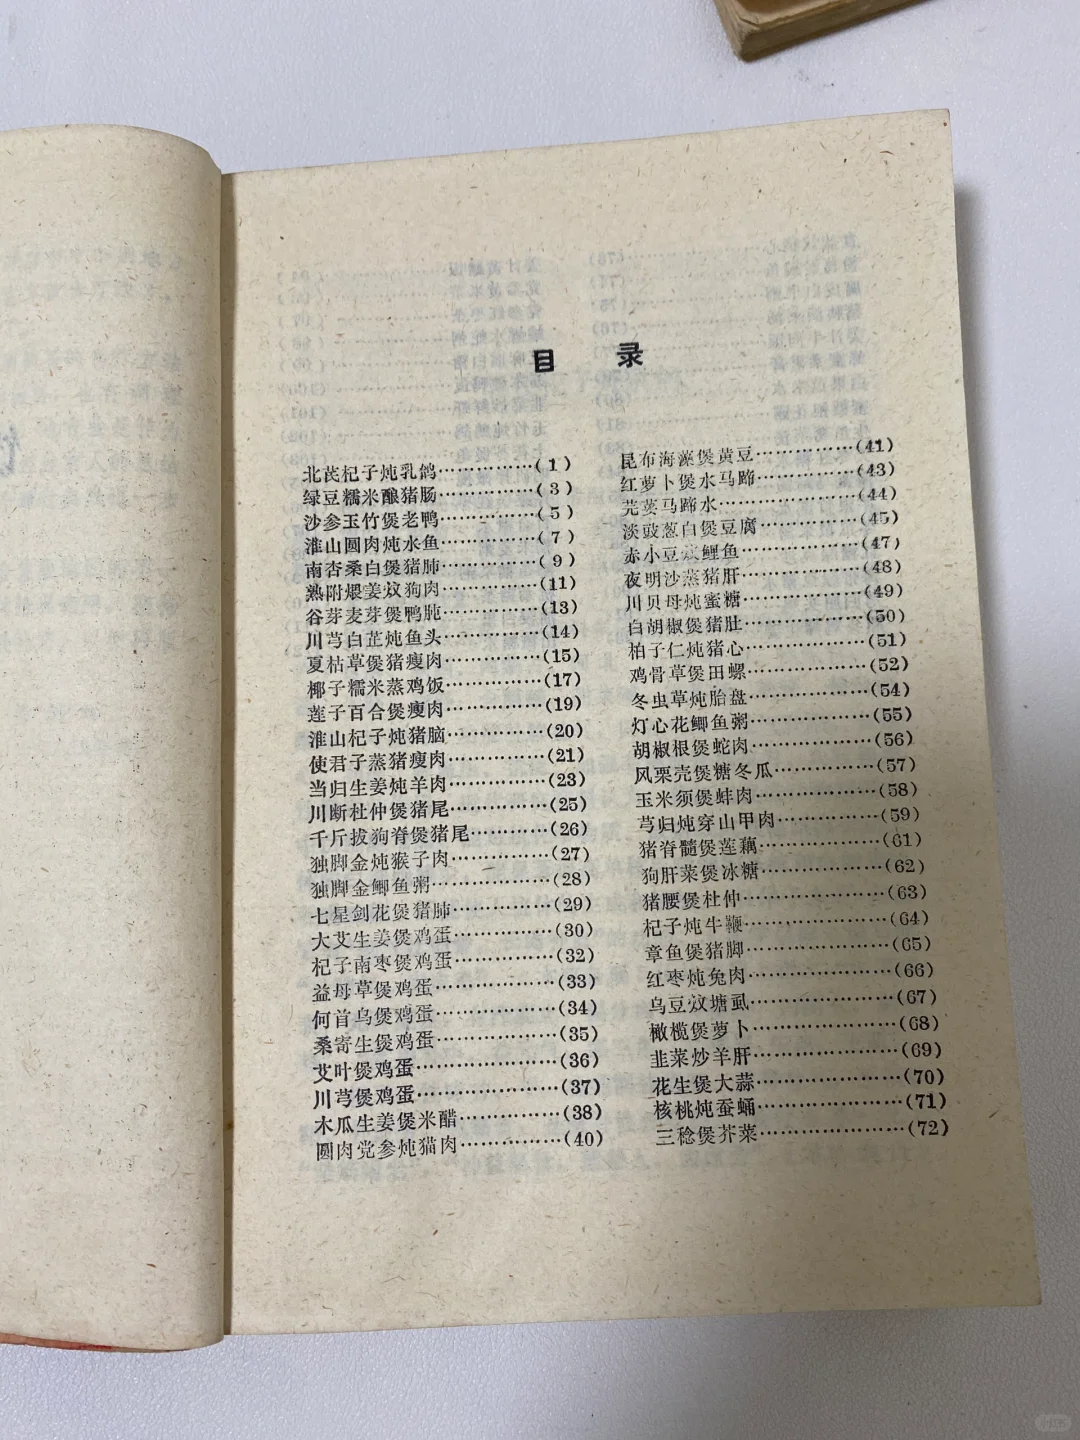 目 录
北芪杞子炖乳鸽……………(1)
绿豆糯米酿猪肠……………(3)
沙参玉竹煲老鸭……………(5)
淮山圆肉炖水鱼……………(7)
南杏桑白煲猪肺……………(9)
熟附煨姜炆狗肉……………(11)
谷芽麦芽煲鸭肫……………(13)
川芎白芷炖鱼头……………(14)
夏枯草煲猪瘦肉……………(15)
椰子糯米蒸鸡饭……………(17)
莲子百合煲瘦肉……………(19)
淮山杞子炖猪脑……………(20)
使君子蒸猪瘦肉……………(21)
当归生姜炖羊肉……………(23)
川断杜仲煲猪尾……………(25)
千斤拔狗脊煲猪尾…………(26)
独脚金炖猴子肉……………(27)
独脚金鲫鱼粥………………(28)
七星剑花煲猪肺……………(29)
大艾生姜煲鸡蛋……………(30)
杞子南枣煲鸡蛋……………(32)
益母草煲鸡蛋………………(33)
何首乌煲鸡蛋………………(34)
桑寄生煲鸡蛋………………(35)
艾叶煲鸡蛋…………………(36)
川芎煲鸡蛋…………………(37)
木瓜生姜煲米醋……………(38)
圆肉党参炖猫肉……………(40)
昆布海藻煲黄豆……………(41)
红萝卜煲水马蹄……………(43)
芫荽马蹄水…………………(44)
淡豉葱白煲豆腐……………(45)
赤小豆炆鲤鱼………………(47)
夜明沙蒸猪肝………………(48)
川贝母炖蜜糖………………(49)
白胡椒煲猪肚………………(50)
柏子仁炖猪心………………(51)
鸡骨草煲田螺………………(52)
冬虫草炖胎盘………………(54)
灯心花鲫鱼粥………………(55)
胡椒根煲蛇肉………………(56)
风栗壳煲糖冬瓜……………(57)
玉米须煲蚌肉………………(58)
芎归炖穿山甲肉……………(59)
猪脊髓煲莲藕………………(61)
狗肝菜煲冰糖………………(62)
猪腰煲杜仲…………………(63)
杞子炖牛鞭…………………(64)
章鱼煲猪脚…………………(65)
红枣炖兔肉…………………(66)
乌豆炆塘虱…………………(67)
橄榄煲萝卜…………………(68)
韭菜炒羊肝…………………(69)
花生煲大蒜…………………(70)
核桃炖蚕蛹…………………(71)
三稔煲芥菜…………………(72)